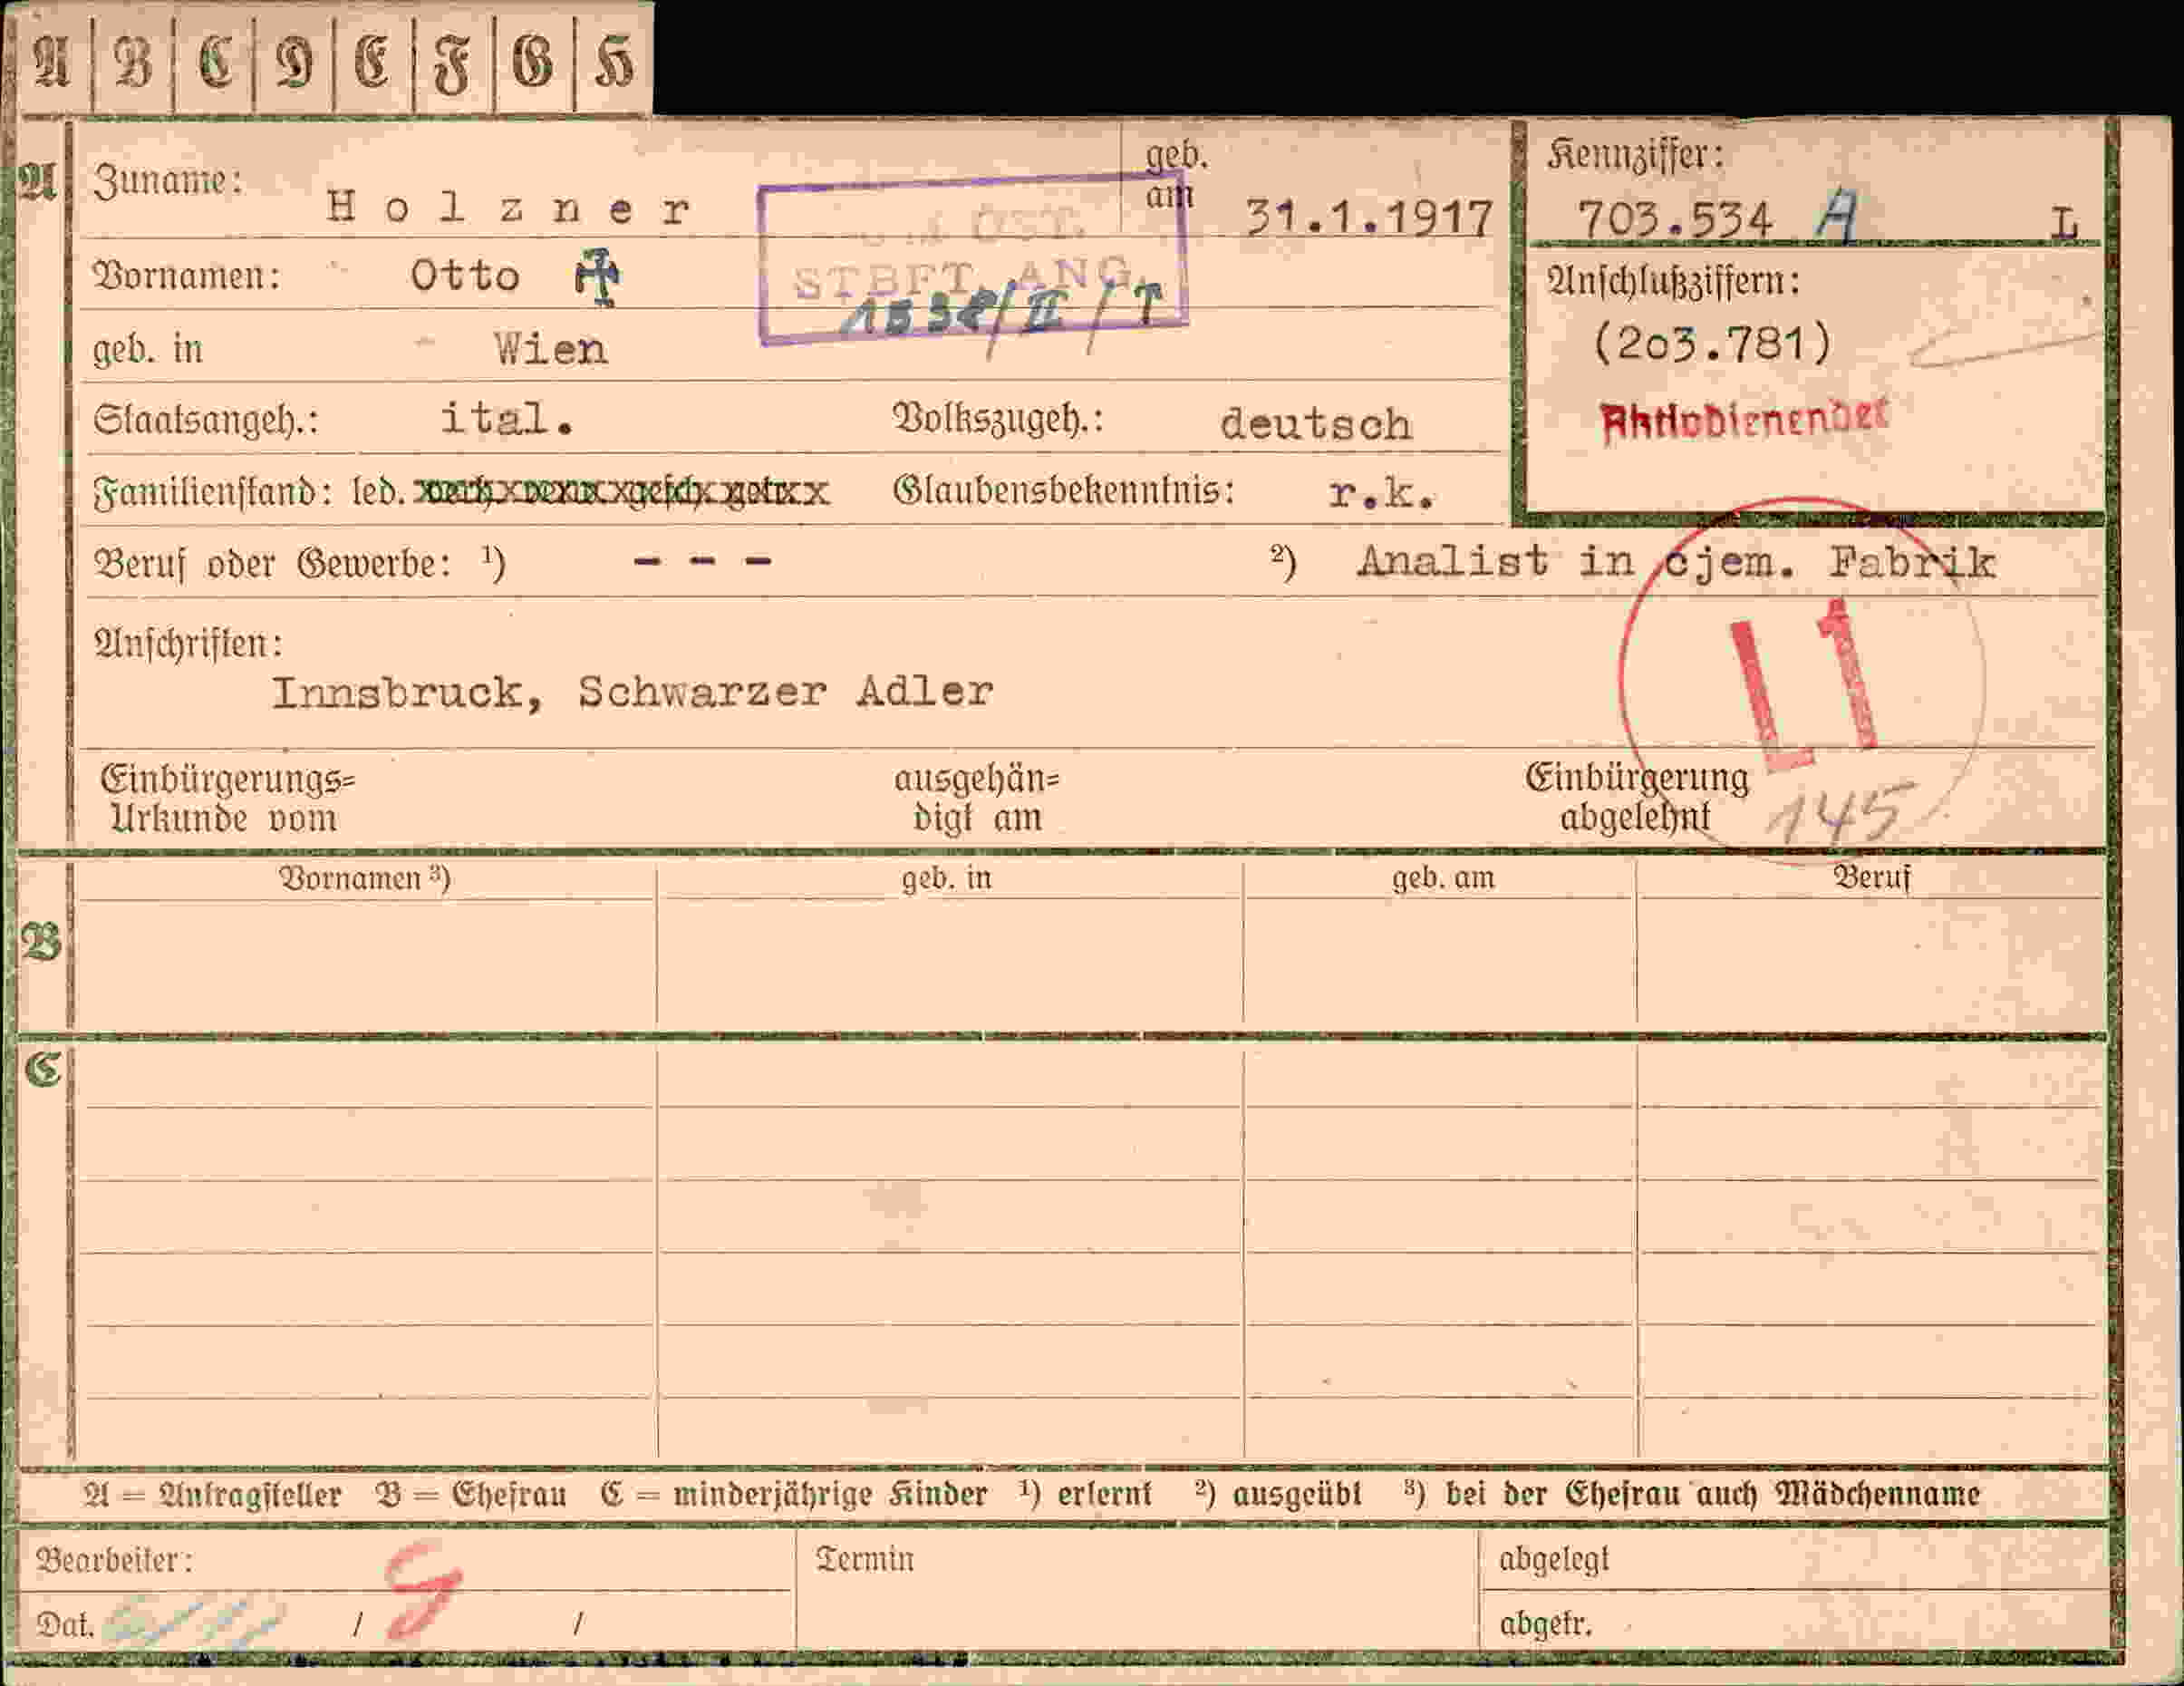 A B C D E F G H
A
Zuname: Holzner
geb. am 31.1.1917
Kennziffer:
703.534 A L
Vornamen: Otto
ÖST.
STBFT. ANG.
Anschlußziffern:
(2o3.781)
geb. in Wien
Staatsangeh.: ital. Volkszugeh.: deutsch
Familienstand: led. Glaubensbekenntnis: r.k.
Beruf oder Gewerbe: ¹) - - - ²) Analist in cjem. Fabrik
Anschriften:
Innsbruck, Schwarzer Adler
L1
Einbürgerungs=
Urkunde vom
ausgehän=
digt am
Einbürgerung
abgelehnt
145
B
Vornamen ³) geb. in geb. am Beruf
C
A = Antragsteller B = Ehefrau C = minderjährige Kinder ¹) erlernt ²) ausgeübt ³) bei der Ehefrau auch Mädchenname
Bearbeiter: Termin abgelegt
Dat. / / abgetr.